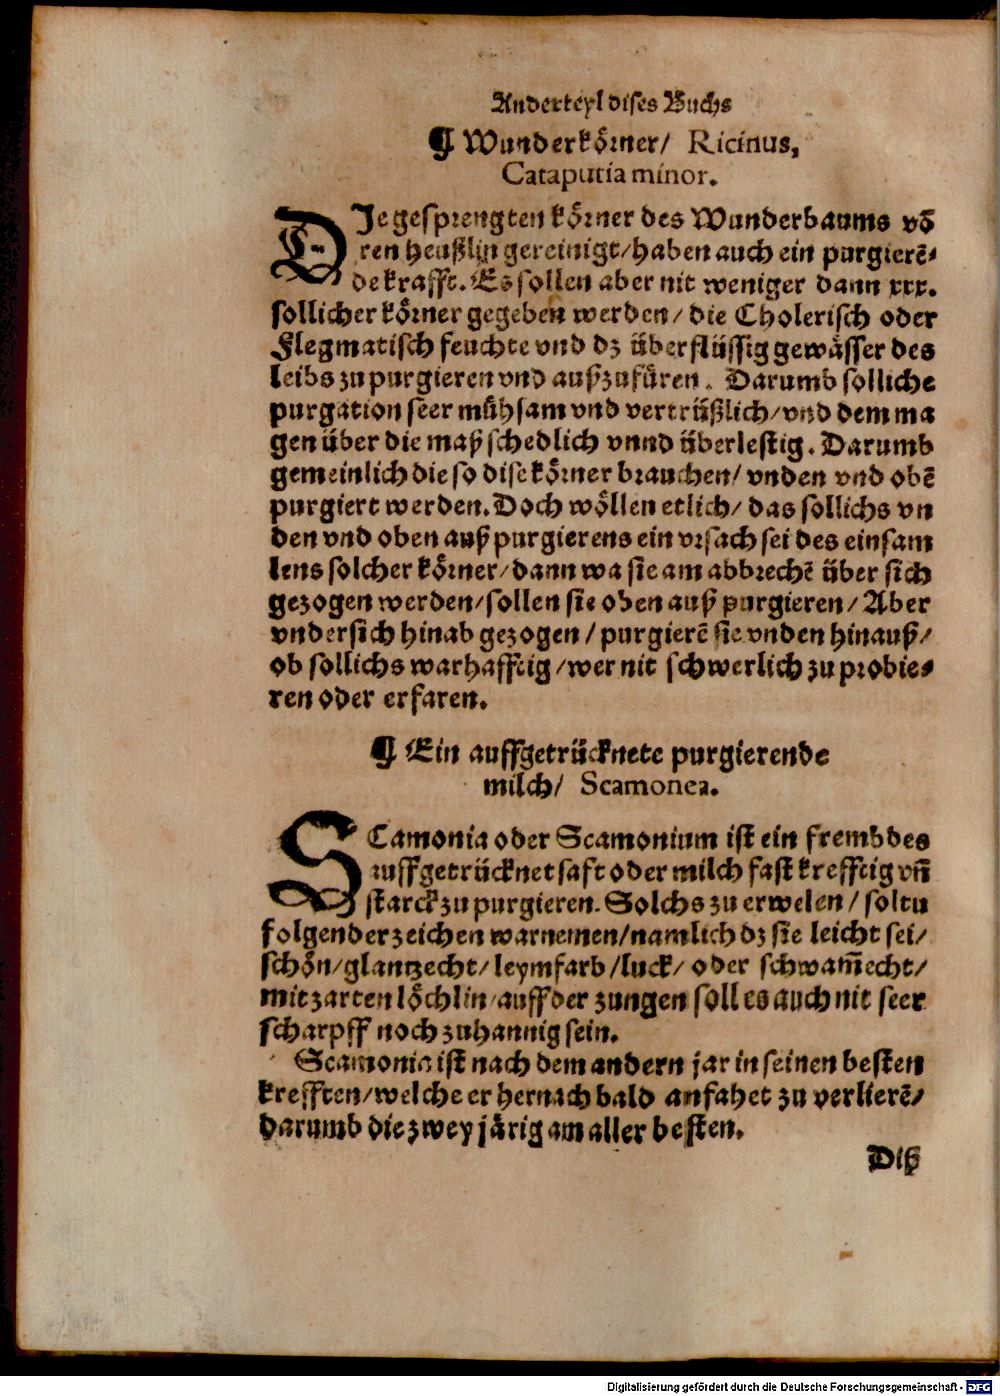 Anderteyl dises Buchs
¶ Wunderkoͤrner/ Ricinus,
Cataputia minor.
DIe gesprengten koͤrner des Wunderbaums võ
ren heußlin gereinigt/haben auch ein purgierẽ⸗
de krafft. Es sollen aber nit weniger dann xxx.
sollicher koͤrner gegeben werden/ die Cholerisch oder
Flegmatisch feuchte vnd dz überflüssig gewaͤsser des
leibs zu purgieren vnd außzufüren. Darumb solliche
purgation seer muͤhsam vnd vertrüßlich/vnd dem ma
gen über die maß schedlich vnnd überlestig. Darumb
gemeinlich die so dise koͤrner brauchen/ vnden vnd obẽ
purgiert werden. Doch woͤllen etlich/ das sollichs vn
den vnd oben auß purgierens ein vrsach sei des einsam
lens solcher koͤrner/dann wa sie am abbrechẽ über sich
gezogen werden/sollen sie oben auß purgieren/ Aber
vndersich hinab gezogen/ purgierẽ sie vnden hinauß/
ob sollichs warhafftig/wer nit schwerlich zu probie⸗
ren oder erfaren.
¶ Ein auffgetrücknete purgierende
milch/ Scamonea.
SCamonia oder Scamonium ist ein frembdes
auffgetrücknet saft oder milch fast krefftig vñ
starck zu purgieren. Solchs zu erwelen/ soltu
folgender zeichen warnemen/namlich dz sie leicht sei/
schoͤn/glantzecht/leymfarb/luck/ oder schwam̃echt/
mit zarten loͤchlin/auff der zungen soll es auch nit seer
scharpff noch zuhannig sein.
Scamonia ist nach dem andern jar in seinen besten
krefften/welche er hernach bald anfahet zu verlierẽ/
darumb die zwey jaͤrig am aller besten.
Diß
Digitalisierung gefördert durch die Deutsche Forschungsgemeinschaft - DFG